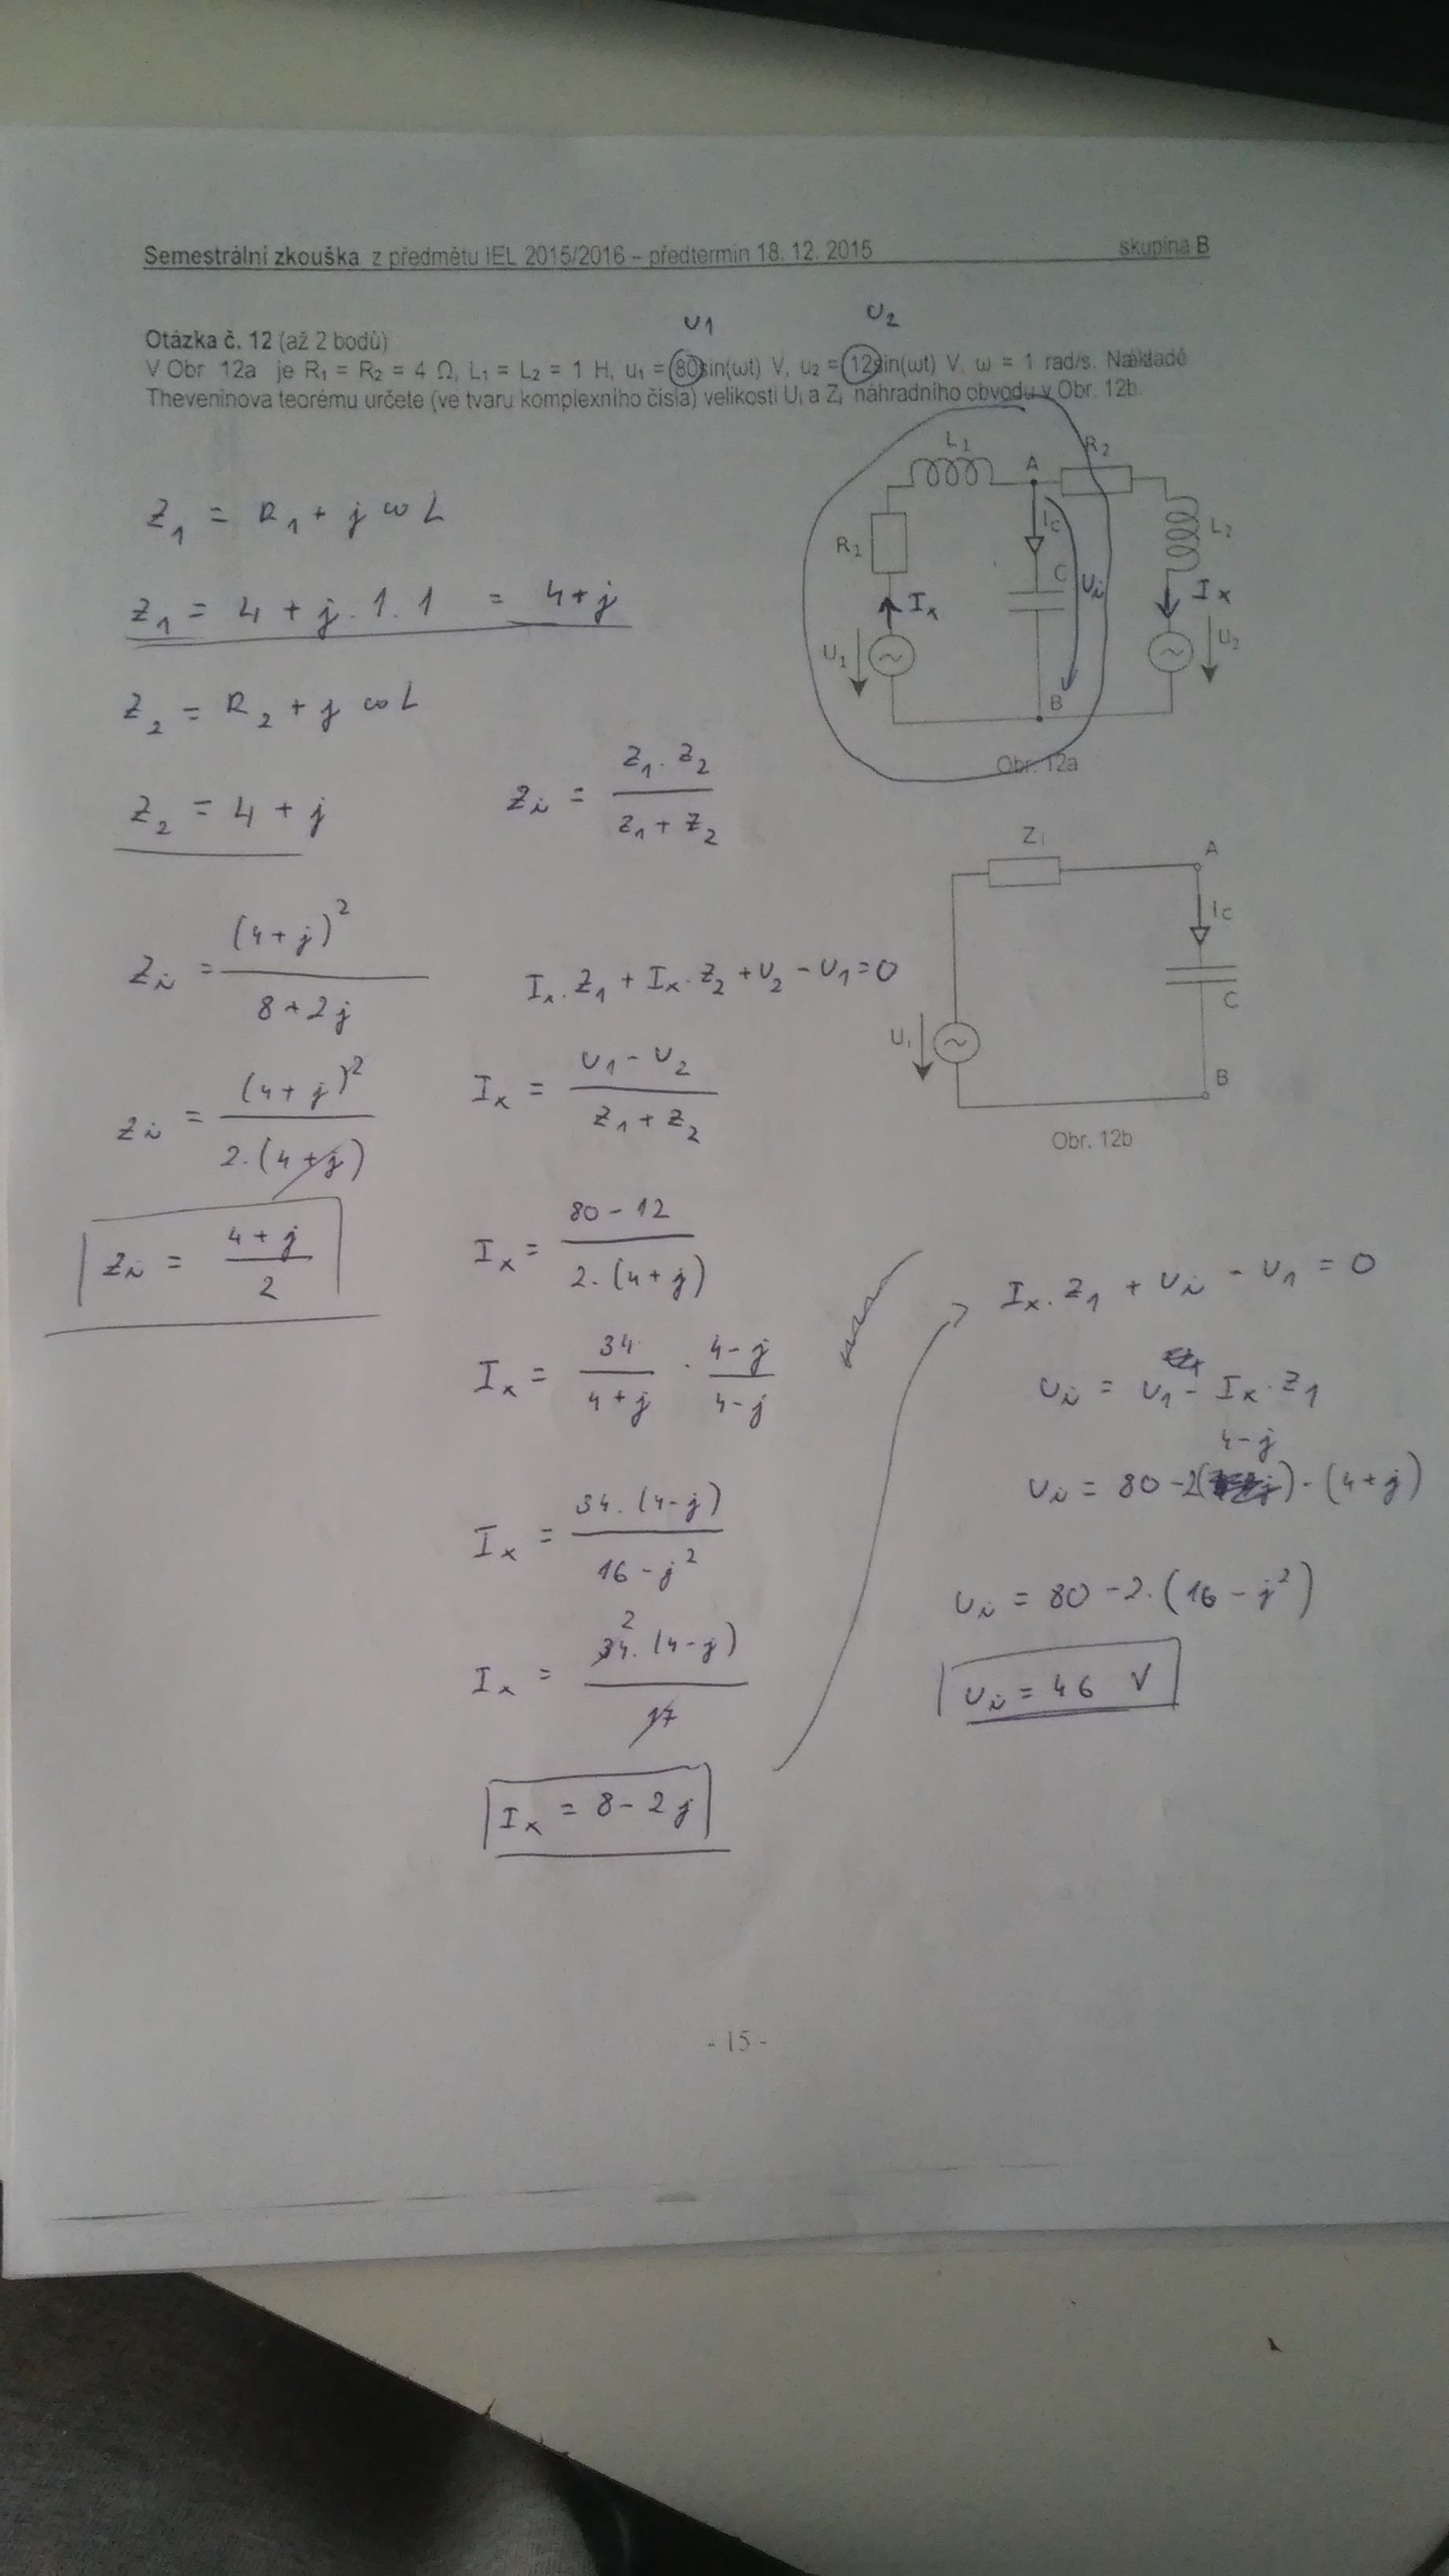 Semestrální zkouška z předmětu IEL 2015/2016 – předtermín 18. 12. 2015 skupina B
U1 U2
Otázka č. 12 (až 2 bodů)
V Obr 12a je R₁ = R₂ = 4 Ω, L₁ = L₂ = 1 H, u₁ = 80sin(ωt) V, u₂ = 12sin(ωt) V, ω = 1 rad/s. Na základě
Theveninova teorému určete (ve tvaru komplexního čísla) velikosti Uᵢ a Zᵢ náhradního obvodu v Obr. 12b.
L₁ A R₂
R₁ Ic C Ui L₂
Ix Ix
U₁ U₂
B
Obr. 12a
Z₁ = R₁ + jωL
Z₁ = 4 + j.1.1 = 4+j
Z₂ = R₂ + jωL
Z₂ = 4 + j
Zi = (4+j)² / 8+2j
Zi = (4+j)² / 2.(4+j)
Zi = 4+j / 2
Zi = Z₁.Z₂ / Z₁+Z₂
Ix.Z₁ + Ix.Z₂ + U₂ - U₁ = 0
Ix = U₁ - U₂ / Z₁ + Z₂
Ix = 80 - 12 / 2.(4+j)
Ix = 34 / 4+j . 4-j / 4-j
Ix = 34.(4-j) / 16 - j²
2
Ix = 34.(4-j) / 17
Ix = 8 - 2j
Zi A
Ic
C
Ui
B
Obr. 12b
Ix.Z₁ + Ui - U₁ = 0
Ui = U₁ - Ix.Z₁
4-j
Ui = 80 - 2( ) · (4+j)
Ui = 80 - 2.(16 - j²)
Ui = 46 V
- 15 -